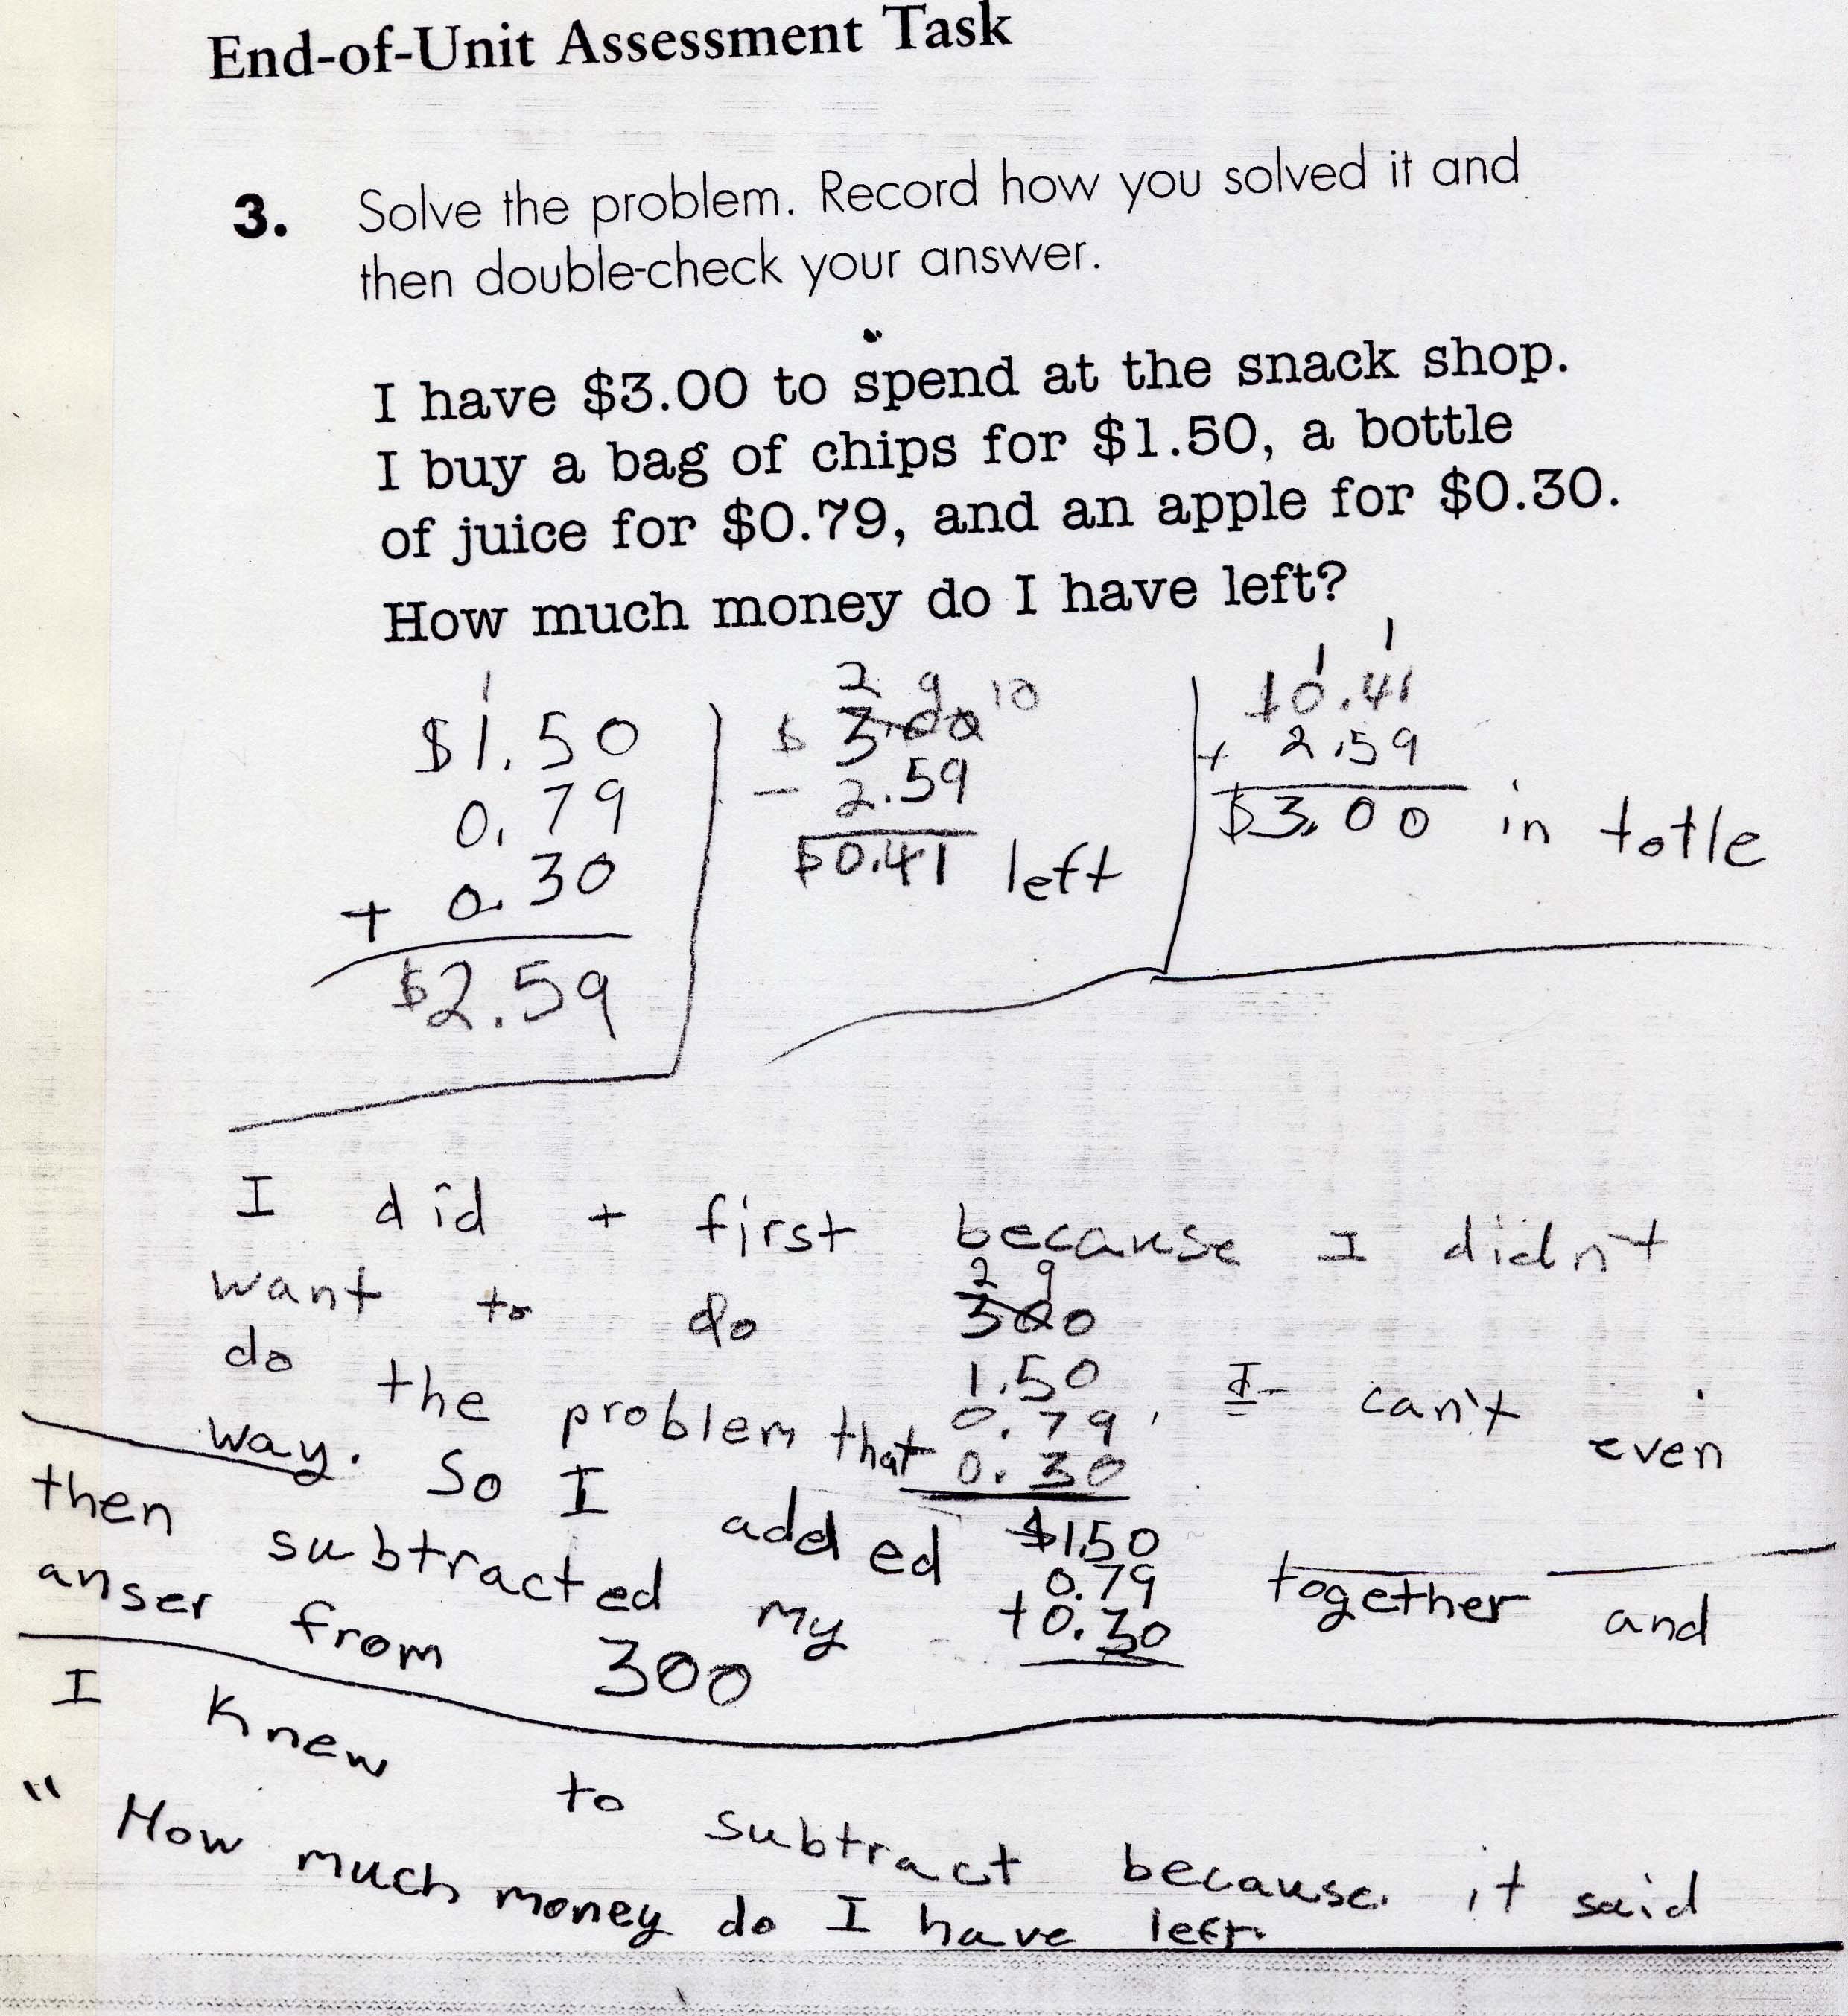 End-of-Unit Assessment Task
3. Solve the problem. Record how you solved it and
then double-check your answer.
I have $3.00 to spend at the snack shop.
I buy a bag of chips for $1.50, a bottle
of juice for $0.79, and an apple for $0.30.
How much money do I have left?
1
$1.50
0.79
+ 0.30
$2.59
2 9 10
$ 3.00
- 2.59
$0.41 left
1 1
$0.41
+ 2.59
$3.00 in totle
I did + first because I didn't
want to do
2 9
300
1.50
0.79,
0.30
I can't even
do the problem that
way. So I added
$1.50
0.79
+0.30
together and
then subtracted my
anser from 300
I Knew to subtract because it said
" How much money do I have left